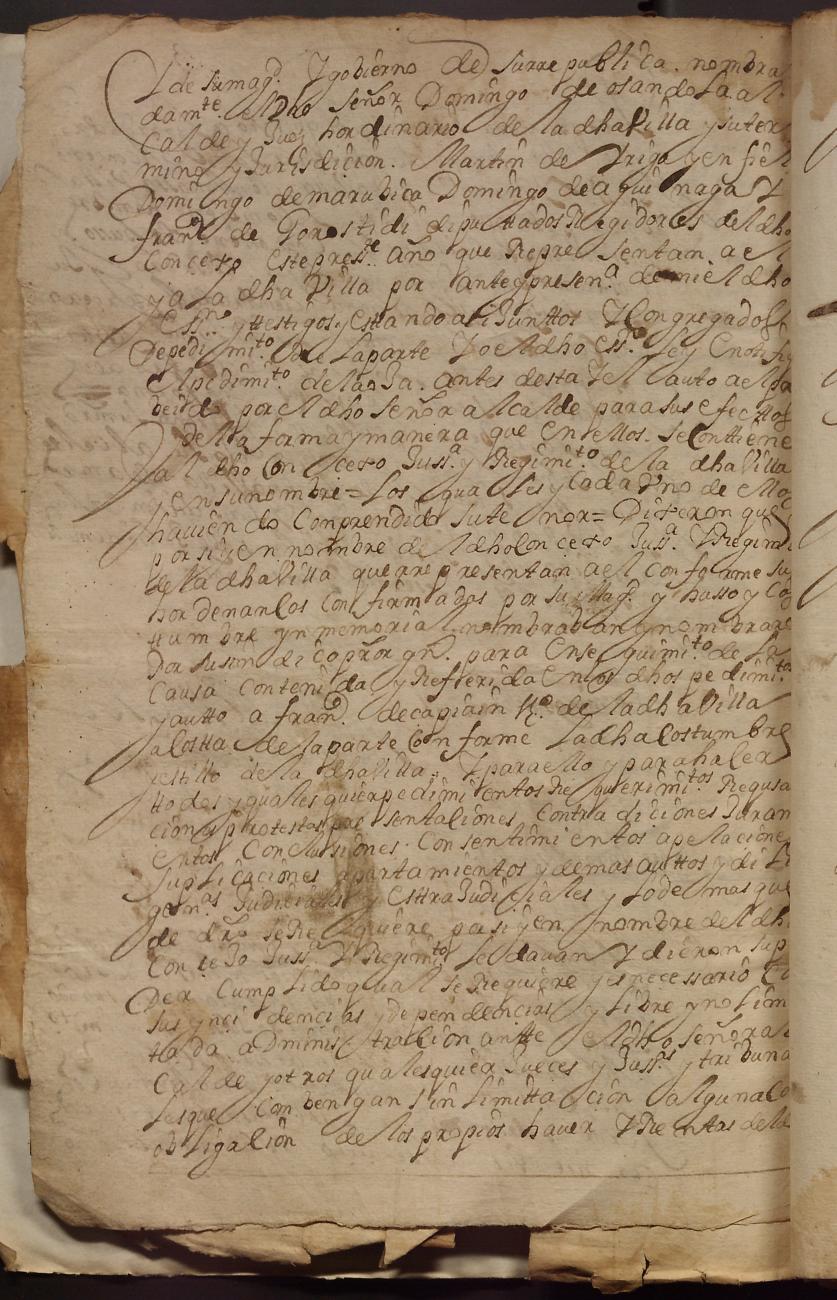 de su magd. Y gobierno de su rrepublica. nombra
damte. el dho señor Domingo de osando la al
Calde y Juez hordinario de la dha Villa y su ter
mino y Jurisdicion. Martin de Yrigoyen fiel
Domingo de marubica Domingo de aguinaga Y
franco. de Gorostidi diputtados Regidores del dho
Concexo este preste. año que Representan a el
y a la dha Villa por ante y presena. de mi el dho
essno. y ttestigos y esttando asi Junttos Y Congregados
De pedimito. de la parte Yo el dho essno. ley e notifi
el pedimito. de la ója. antes desta Y el auto a el pro
beido por el dho señor alcalde para sus efecttos
de la forma y manera que en ellos se conttiene
al dho Concexo Jussa. y Regimito. de la dha Villa
y en su nombre = Los quales y cada Uno de ellos
haviendo Conprendido su tenor = Dixeron que
por si y en nombre del dho Concexo Jussa. Y Regimi
de la dha Villa que rrepresentan a el conforme sus
hordenanzas confirmadas por su Magd. y husso y cos
tumbre ynmemorial nombraban y nombraro
por su sindico pror gnl. para en seguimito. de la
Causa Contenida y Refferida en los dhos pedimitos.
y autto a franco. de capiain vo. de la dha Villa
a costta de la parte Conforme la dha costumbre
y estillo de la dha Villa. Y para ello y para hacer
ttodos y qualesquier pedimientos Requerimitos. Recusa
ciones protestas presentaciones Contradiciones Juram
entos Conclussiones. Consentimientos apelacione
suplicaciones apartamientos y demas auttos y dili
genas. Judiciales y esttraJudiciales y lo demas que
de dro. se Requiere por si y en nombre del dho
Concejo Jussa. Y Regimto. le davan Y dieron su p
der Cumplido qual se Requiere y es necessario Co
sus yncidencias y dependencias y libre y no limi
tada adminisstracion antte el dho señor al
Calde y otros qualesquier Jueces y Jussas. y tribuna
les que Conbengan sin limittacion alguna Co
obligacion de los propios haver Y Rentas del d